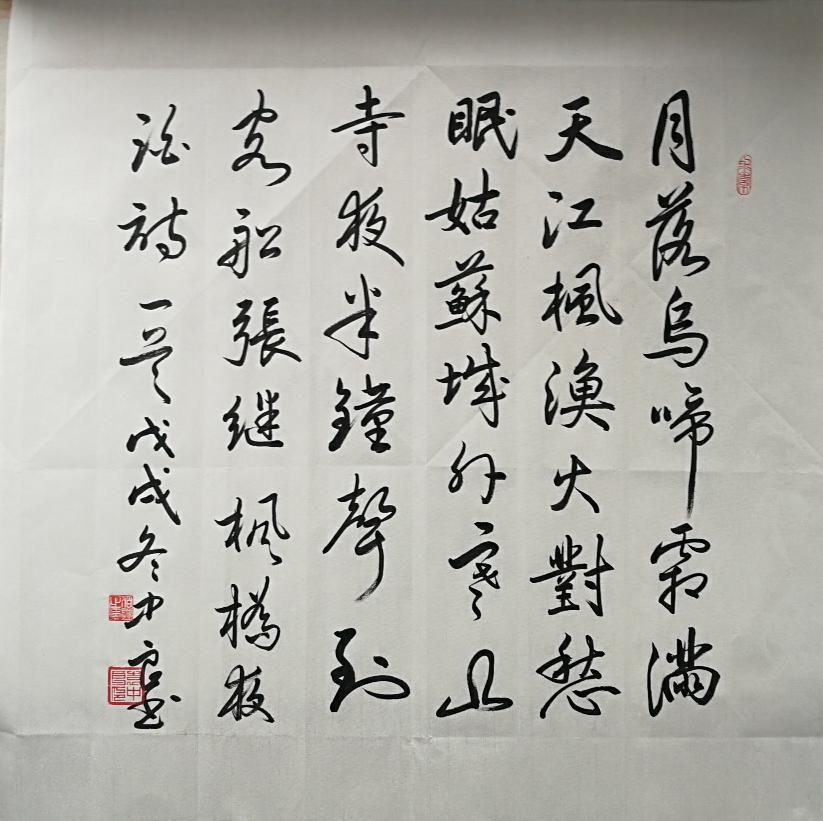 月落烏啼霜滿
天江楓漁火對愁
眠姑蘇城外寒山
寺夜半鐘聲到
客船張继枫橋夜
泊詩一首戊戌冬中良书